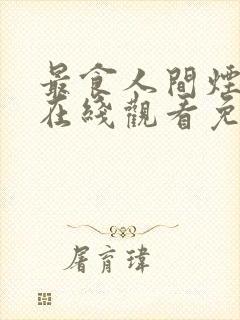 最食人間煙
在綫觀看免
屠育瑋